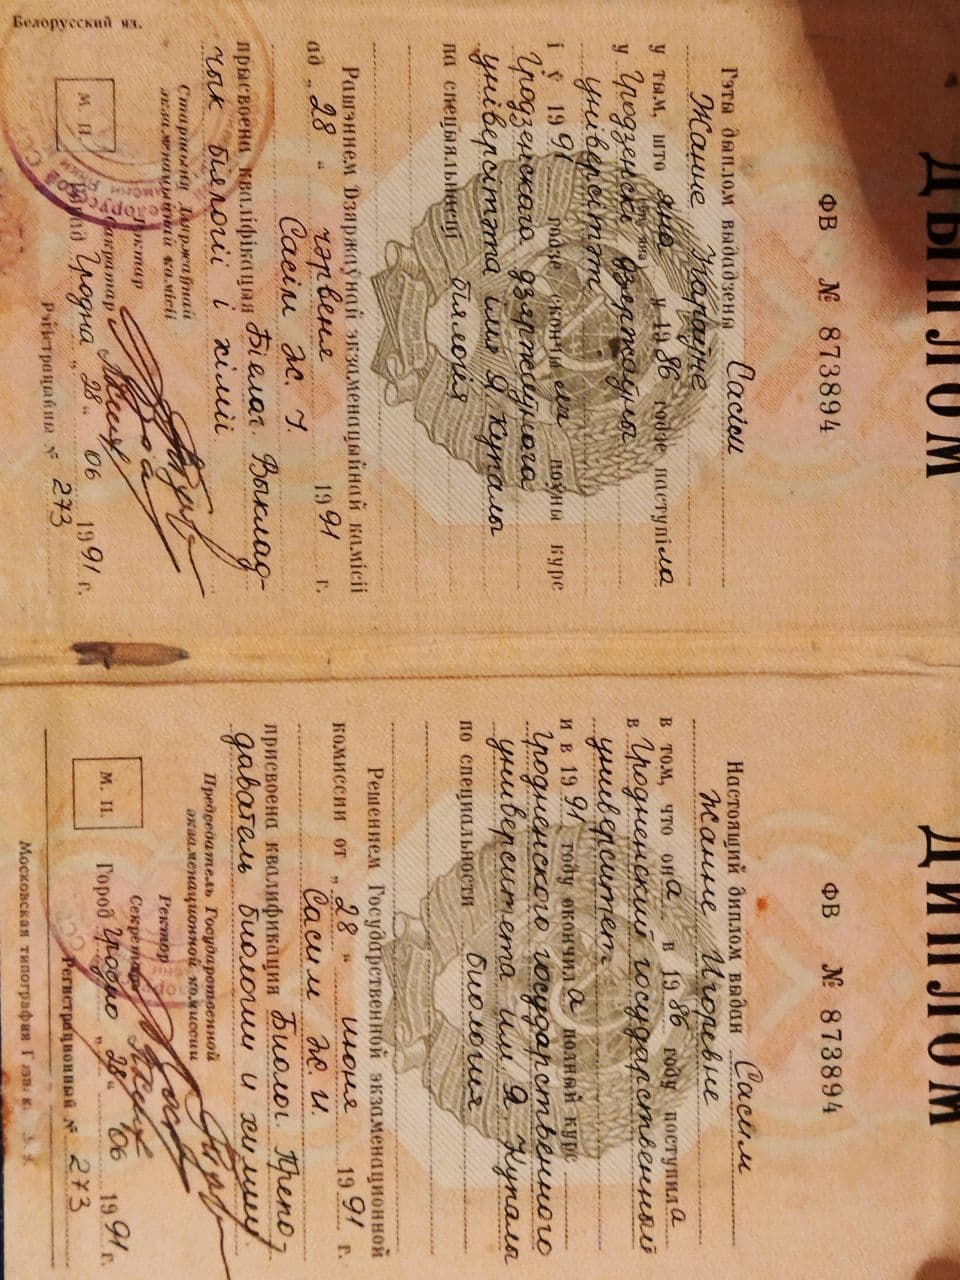 Белорусский яз.
ДЫПЛОМ
ФВ № 873894
Гэты дыплом выдадзены Сасім
Жанне Ігараўне
у тым, што яна у 1986 годзе паступіла
у Гродзенскі дзяржаўны
універсітэт
і ў 1991 годзе скончыла поўны курс
Гродзенскага дзяржаўнага
універсітэта імя Я. Купалы
па спецыяльнасці біялогія
Рашэннем Дзяржаўнай экзаменацыйнай камісіі
ад „28“ чэрвеня 1991 г.
Сасім Ж. І.
прысвоена кваліфікацыя Біёлаг. Выклад-
чык біялогіі і хіміі
Старшыня Дзяржаўнай
экзаменацыйнай камісіі
Рэктар
Сакратар
М. П.
Горад Гродна „28“ 06 1991 г.
Рэгістрацыйны № 273
ДИПЛОМ
ФВ № 873894
Настоящий диплом выдан Сасим
Жанне Игоревне
в том, что она в 1986 году поступила
в Гродненский государственный
университет
и в 1991 году окончила полный курс
Гродненского государственного
университета им. Я. Купалы
по специальности биология
Решением Государственной экзаменационной
комиссии от „28“ июня 1991 г.
Сасим Ж. И
присвоена квалификация Биолог. Препо-
даватель биологии и химии
Председатель Государственной
экзаменационной комиссии
Ректор
Секретарь
М. П.
Город Гродно „28“ 06 1991 г.
Регистрационный № 273
Московская типография Гознака.